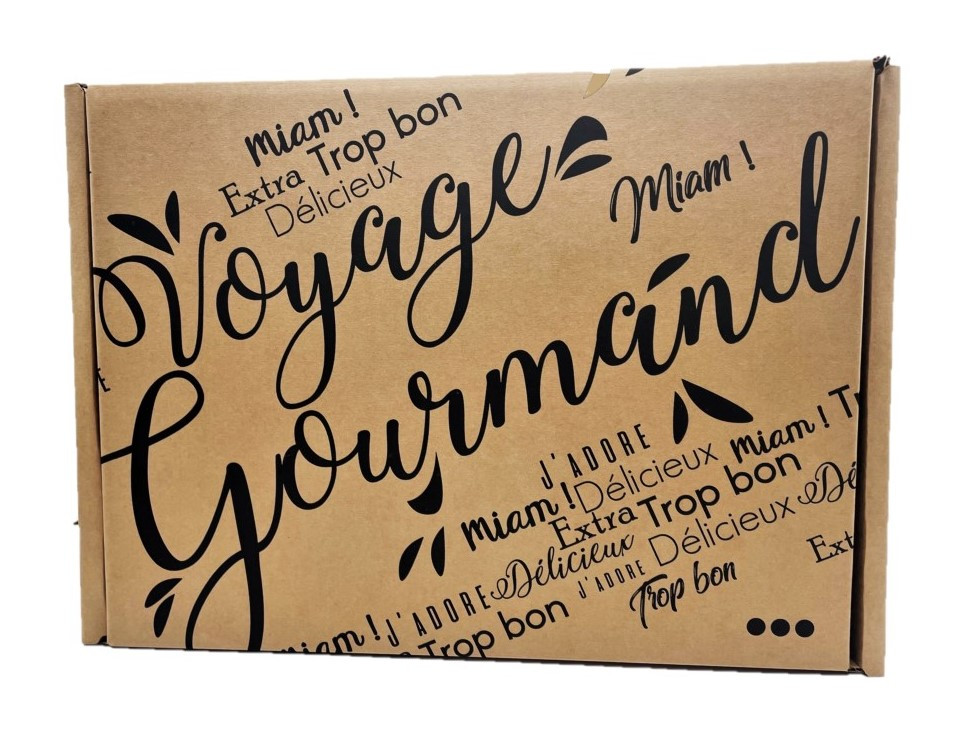 Miam !
Extra Trop bon
Délicieux
Voyage
Miam !
Gourmand
J'ADORE
Délicieux Miam !
Miam !
Extra Trop bon
Délicieux
J'ADORE Délicieux
Trop bon
J'ADORE
Trop bon